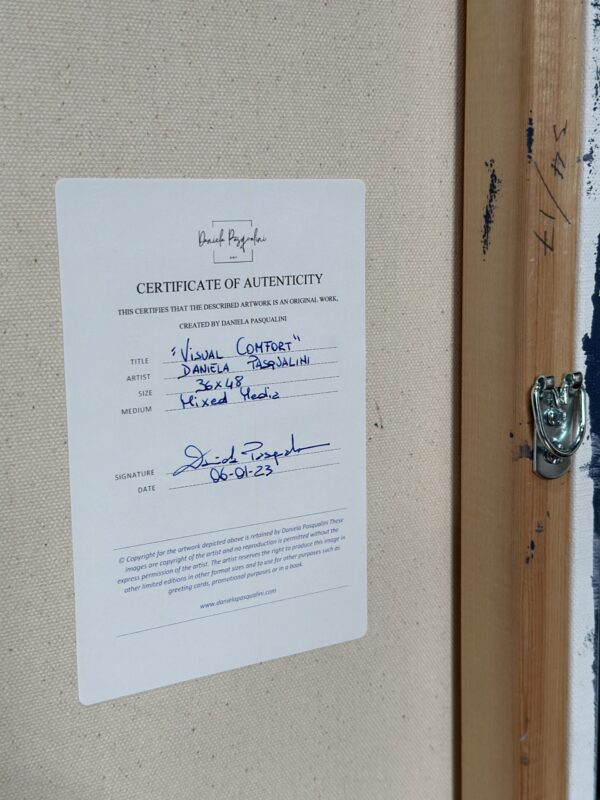 Daniela Pasqualini
ART
CERTIFICATE OF AUTENTICITY
THIS CERTIFIES THAT THE DESCRIBED ARTWORK IS AN ORIGINAL WORK,
CREATED BY DANIELA PASQUALINI
TITLE "VISUAL COMFORT"
ARTIST DANIELA PASQUALINI
SIZE 36x48
MEDIUM Mixed Media
SIGNATURE Daniela Pasqualini
DATE 06-01-23
© Copyright for the artwork depicted above is retained by Daniela Pasqualini These
images are copyright of the artist and no reproduction is permitted without the
express permission of the artist. The artist reserves the right to produce this image in
other limited editions in other format sizes and to use for other purposes such as
greeting cards, promotional purposes or in a book.
www.danielapasqualini.com